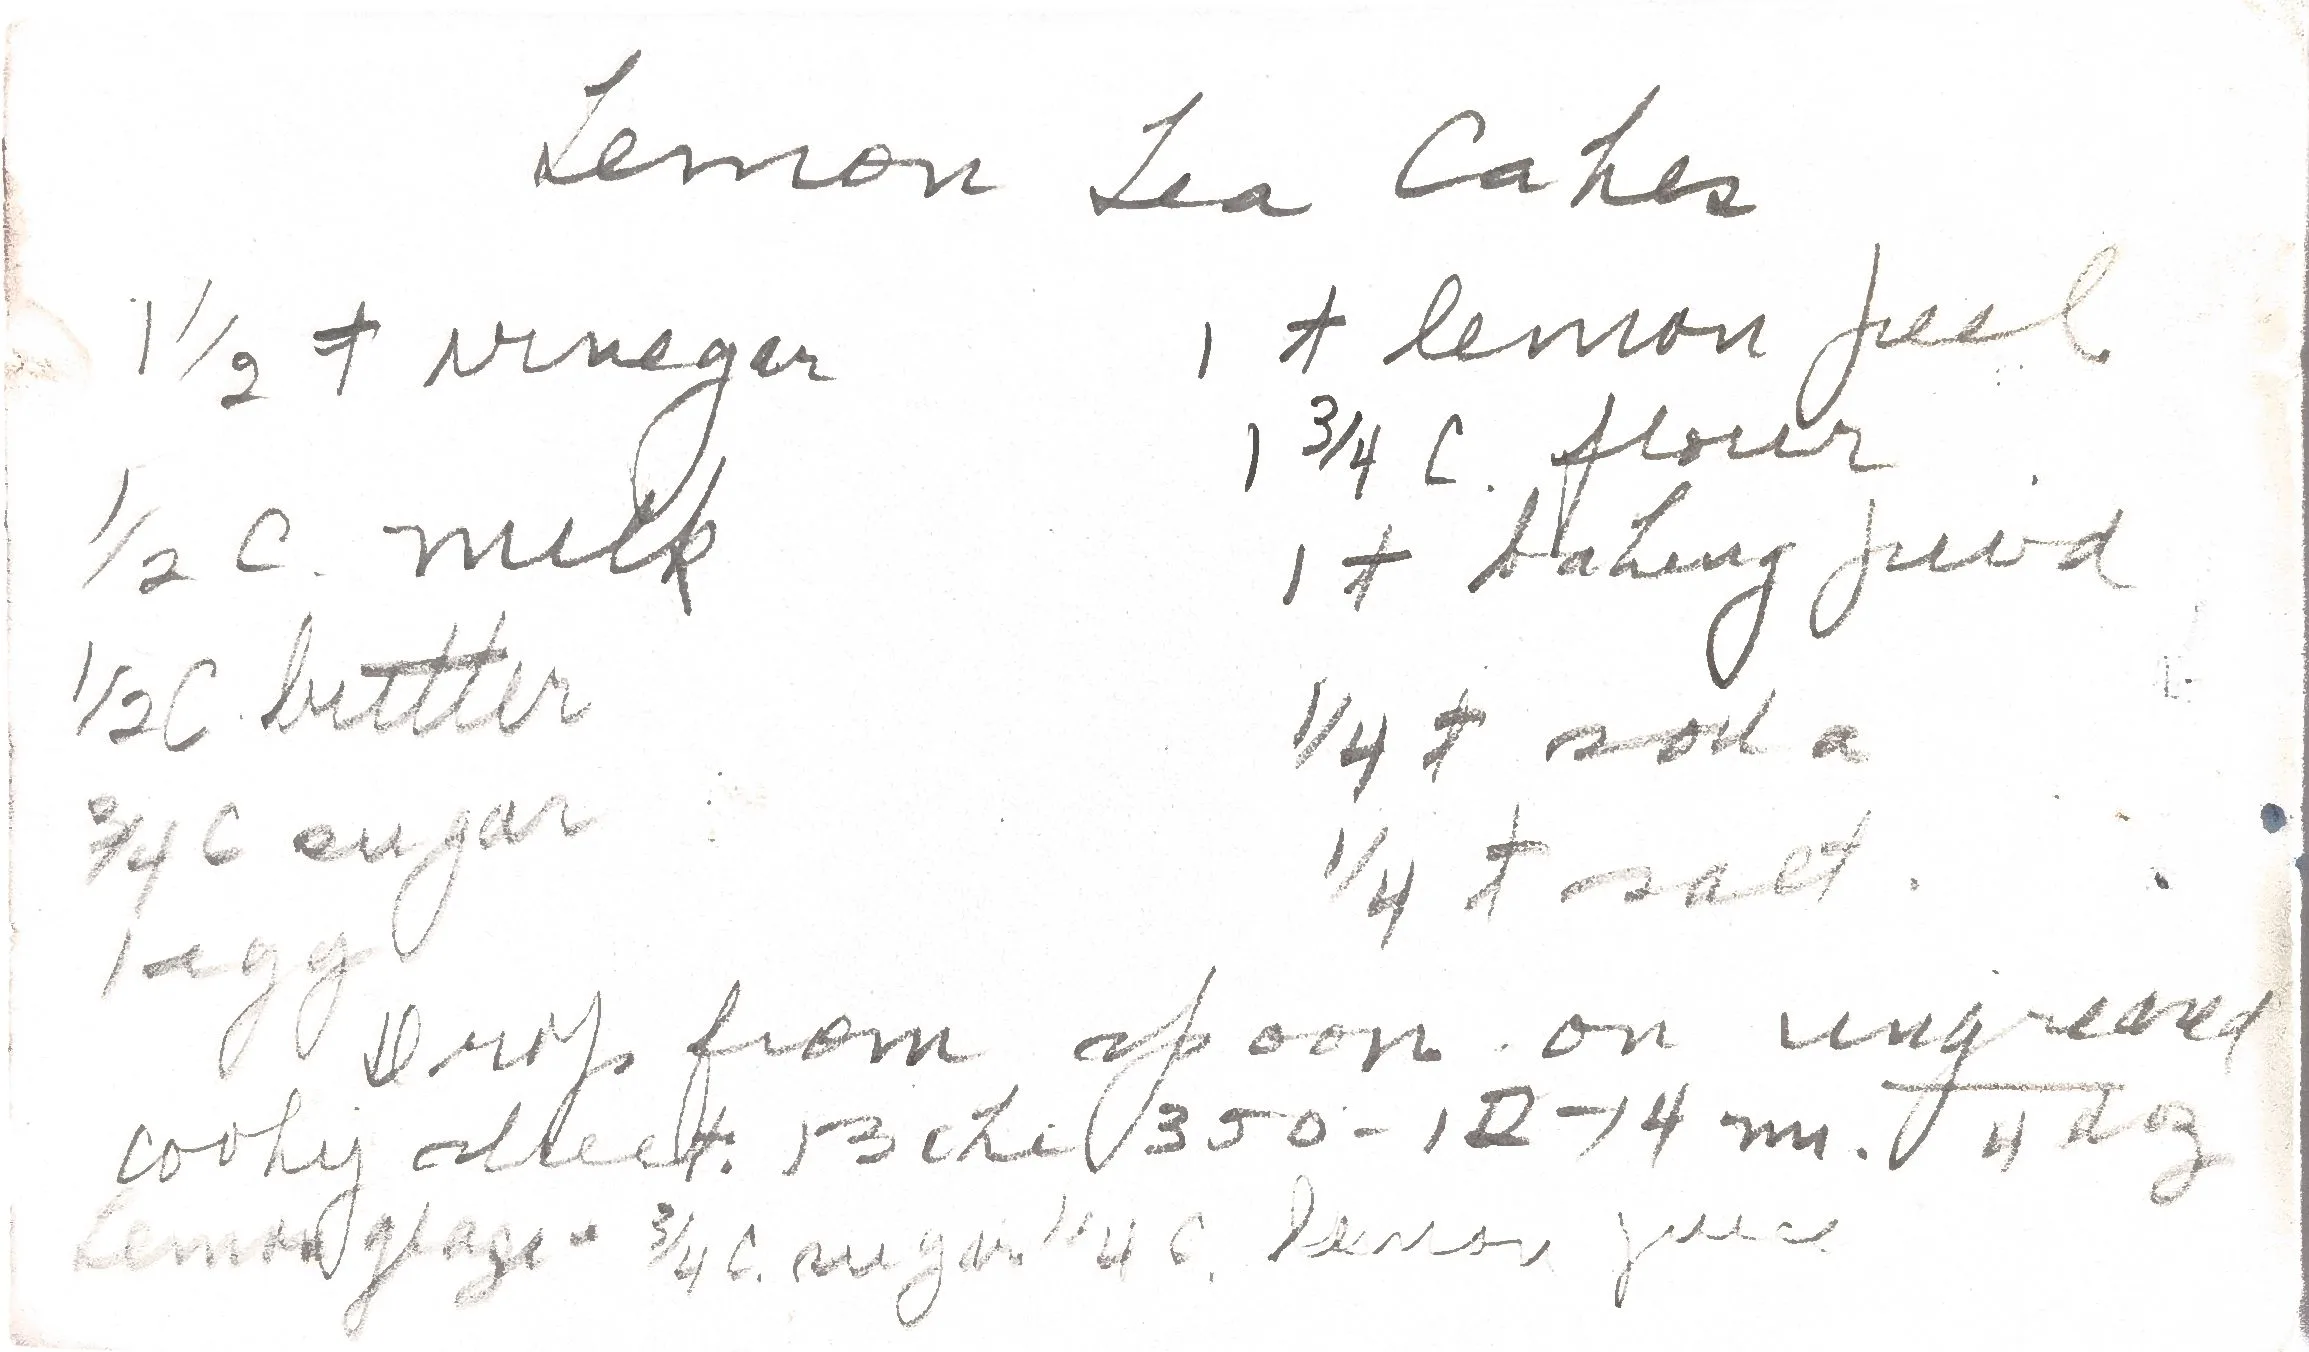 Lemon Tea Cakes
1 1/2 t vinegar
1/2 C. milk
1/2 C. butter
3/4 C sugar
1 egg
1 t lemon peel
1 3/4 C. flour
1 t baking powd
1/4 t soda
1/4 t salt.
Drop from spoon on ungreased
cooky sheet. Bake 350 - 12-14 mi. 4 doz
Lemon glaze - 3/4 C. sugar 1/4 C. lemon juice